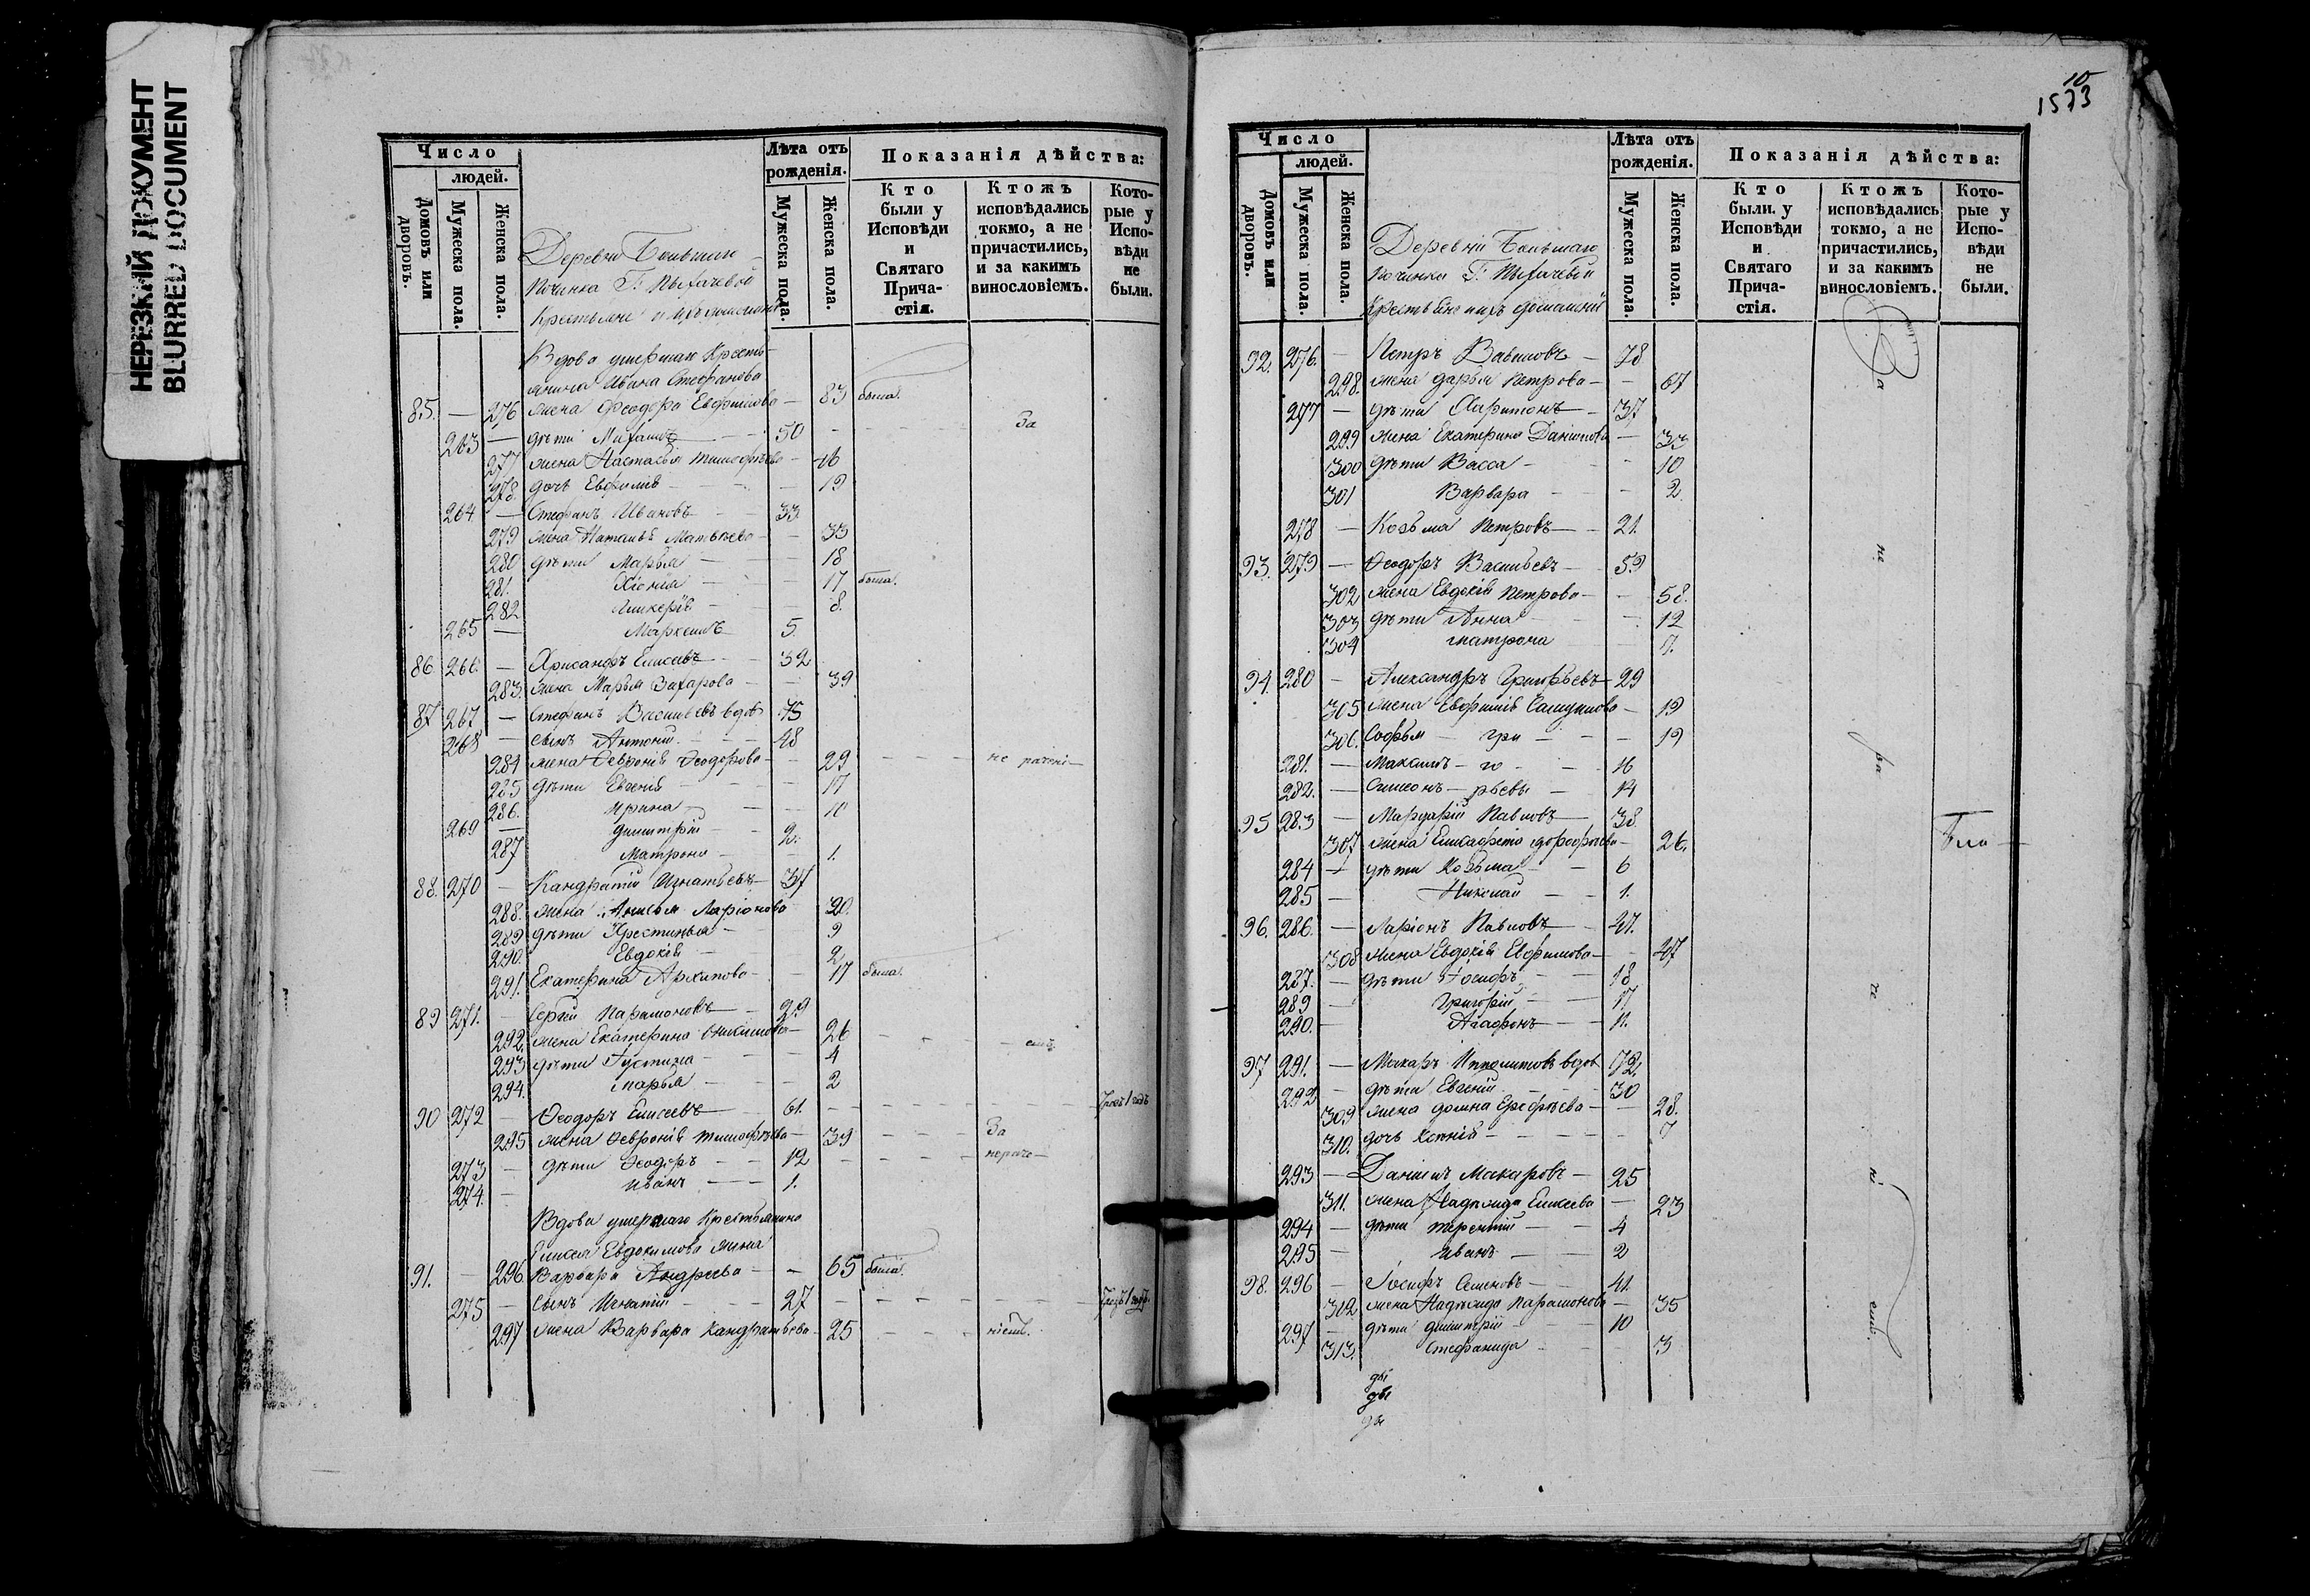 НЕРЕЗКИЙ ДОКУМЕНТ
BLURRED DOCUMENT
Число
людей.
Домовъ или дворовъ.
Мужеска пола.
Женска пола.
Лѣта отъ рожденія.
Мужеска пола.
Женска пола.
Показанія дѣйства:
Кто были у Исповѣди и Святаго Прича-стія.
Ктожъ исповѣдались токмо, а не причастились, и за какимъ винословіемъ.
Кото-рые у Испо-вѣди не были.
Починка Г.
Крестьяне и ихъ домашніи
Вдова умершаго Кресть-
янина Ивана Стефанова
85. — 276 жена Феодора Евфимова — 83 была.
263 — дѣти Михаилъ 50 За
277 жена Настасья Тимофѣева — 46
278. дочь Евфимія — 19
264 — Стефанъ Ивановъ 33
279 жена Наталья Матвѣева — 33
280 дѣти Марья — 18
281. Хіонія 17 была.
282 Гликерія — 8.
265 — Маркеллъ 5.
86 266. — Хрисанфъ Елисеевъ 32
283. жена Марья Захарова — 39
87 267 — Стефанъ Васильевъ вдов 75
268 — сынъ Антоній 48
284 жена Февронія Феодорова — 29 не рачені—
285 дѣти Евгенія 17
286. Ирина — 10
269 — Димитрій — 2.
287 Матрона — 1.
88. 270 — Кандратій Игнатьевъ 37
288. жена Анисья Ларіонова 20.
289 дѣти Крестинья — 9
290. Евдокія — 2
291. Екатерина Архипова — 17 была.
89 271. — Сергій Парамоновъ — 29
292. жена Екатерина 26 емъ
293 дѣти Іустина — 4
294. Марья — 2
90 272 — Феодоръ Елисеевъ 61.
295 жена Февронія Тимофѣева — 39 За
273 — дѣти Феодоръ 12 нераче—
274. — Иванъ 1.
Вдова умершаго Крестьянина
Елисея Евдокимова жена
91. — 296. Варвара Андреева — 65 была.
275 — сынъ Игнатій 27
297 жена Варвара Кандратьева 25 ніемъ.
10
1573
Число
людей.
Домовъ или дворовъ.
Мужеска пола.
Женска пола.
Лѣта отъ рожденія.
Мужеска пола.
Женска пола.
Показанія дѣйства:
Кто были. у Исповѣди и Святаго Прича-стія.
Ктожъ исповѣдались токмо, а не причастились, и за какимъ винословіемъ.
Кото-рые у Испо-вѣди не были.
Деревни Большаго
Починка Г.
Крестьяне и ихъ домашніи
92. 276. — Петръ Вавиловъ — 78
298. жена Дарья Петрова — 67
277 — дѣти Харитонъ — 37
299 жена Екатерина Данилова — 33
300 дѣти Васса — 10
301 Варвара — 2.
278 — Козьма Петровъ — 21.
93. 279 — Феодоръ Васильевъ — 59
302 жена Евдокія Петрова — 58.
303 дѣти Анна — 12
304 Матрона 7.
94. 280 — Александръ Григорьевъ 29
305 жена Евфимія Самуилова — 19
306. Софья — Гри — 19
281. — Максимъ — го — 16
282. — Симеонъ — рьевы — 14
95 283 — Мардарій Павловъ 38.
307 жена 26.
284 — дѣти Козьма — 6
285 — Николай — 1.
96. 286. — Ларіонъ Павловъ — 47.
308 жена Евдокія Евфимова — 47
287. — дѣти Іосифъ — 18
289 — Григорій — 17
290. — Агафонъ — 11.
97 291. — Макаръ Ипполитовъ вдов 72.
292 — дѣти Евгеній 30
309 жена Домна Ерофѣева — 28.
310. дочь Ксенія — 7
293 — Даніилъ Макаровъ — 25
311. жена Надежда Елисеева — 23
294 — дѣти Терентій — 4
295 — Иванъ — 2
98. 296 — Іосифъ Семеновъ — 41.
312 жена Надежда Парамонова — 35
297 — дѣти Димитрій — 10
313. Стефанида 3
За
не
ра
че
ні
емъ.